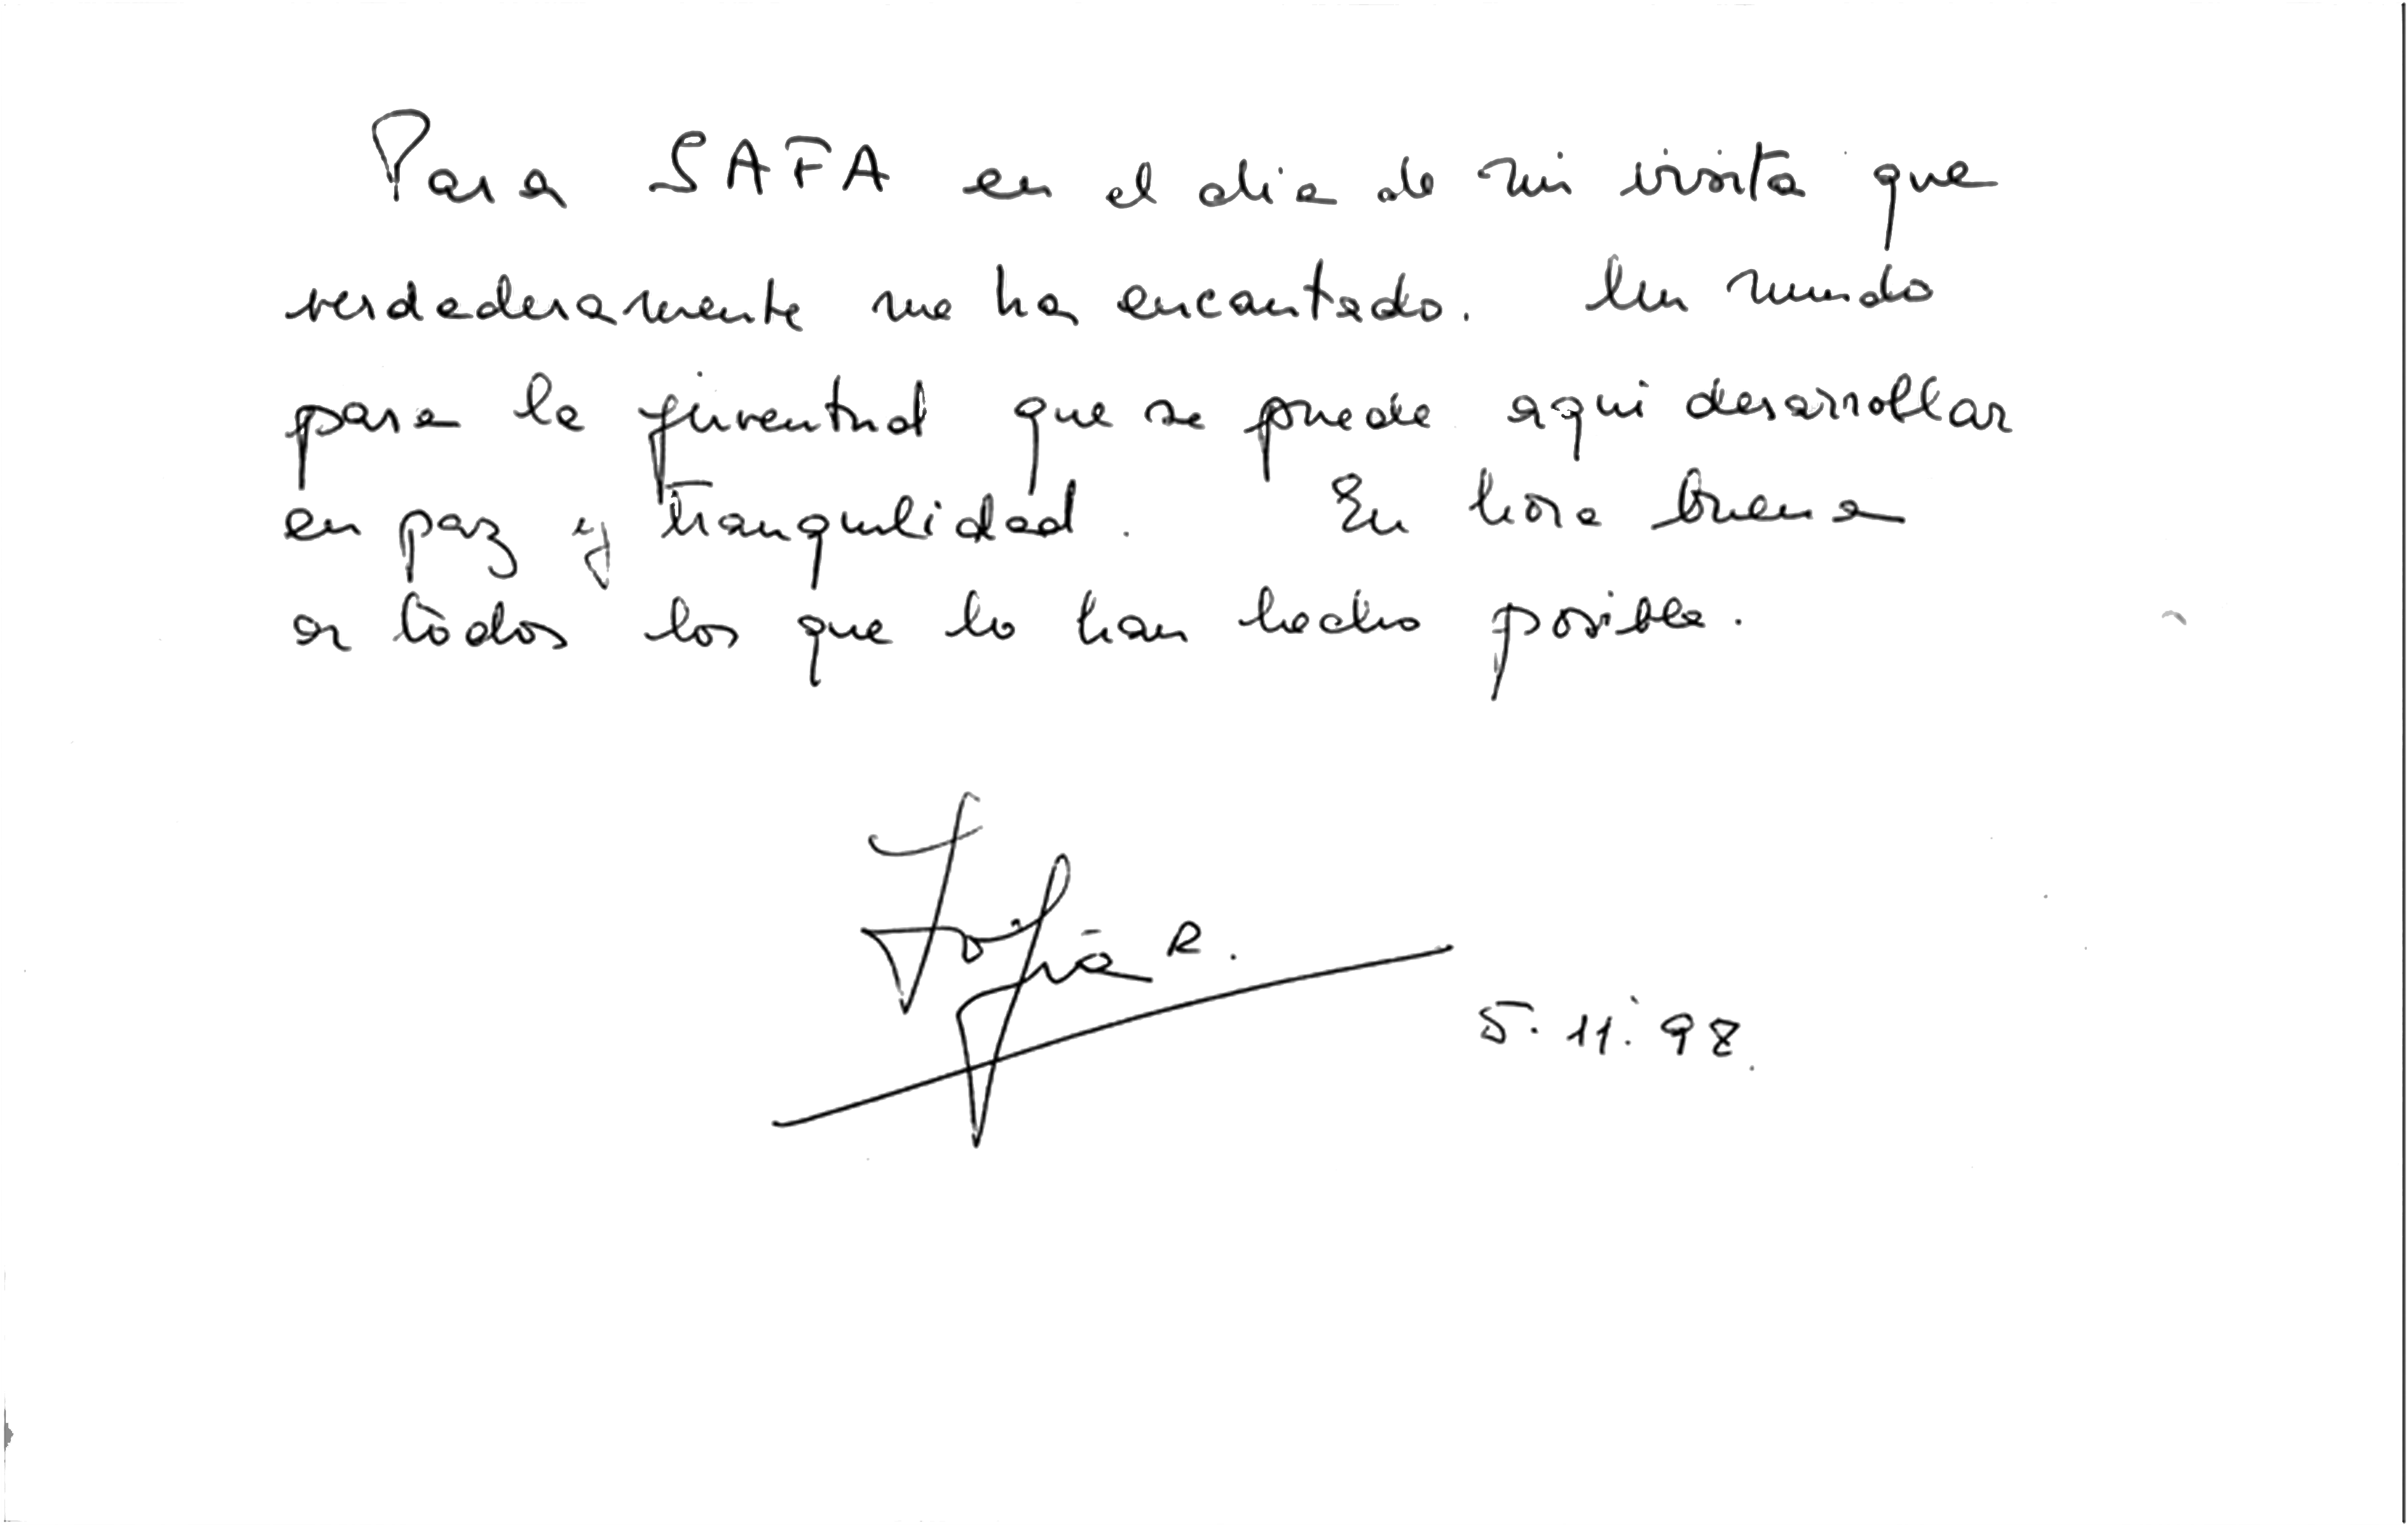 Para SAFA en el dia de mi visita que
verdaderamente me ha encantado. Un mundo
para la juventud que se puede aqui desarrollar
en paz y tranquilidad. En hora buena
a todos los que lo han hecho posible.
Sofía R.
5.11.98.